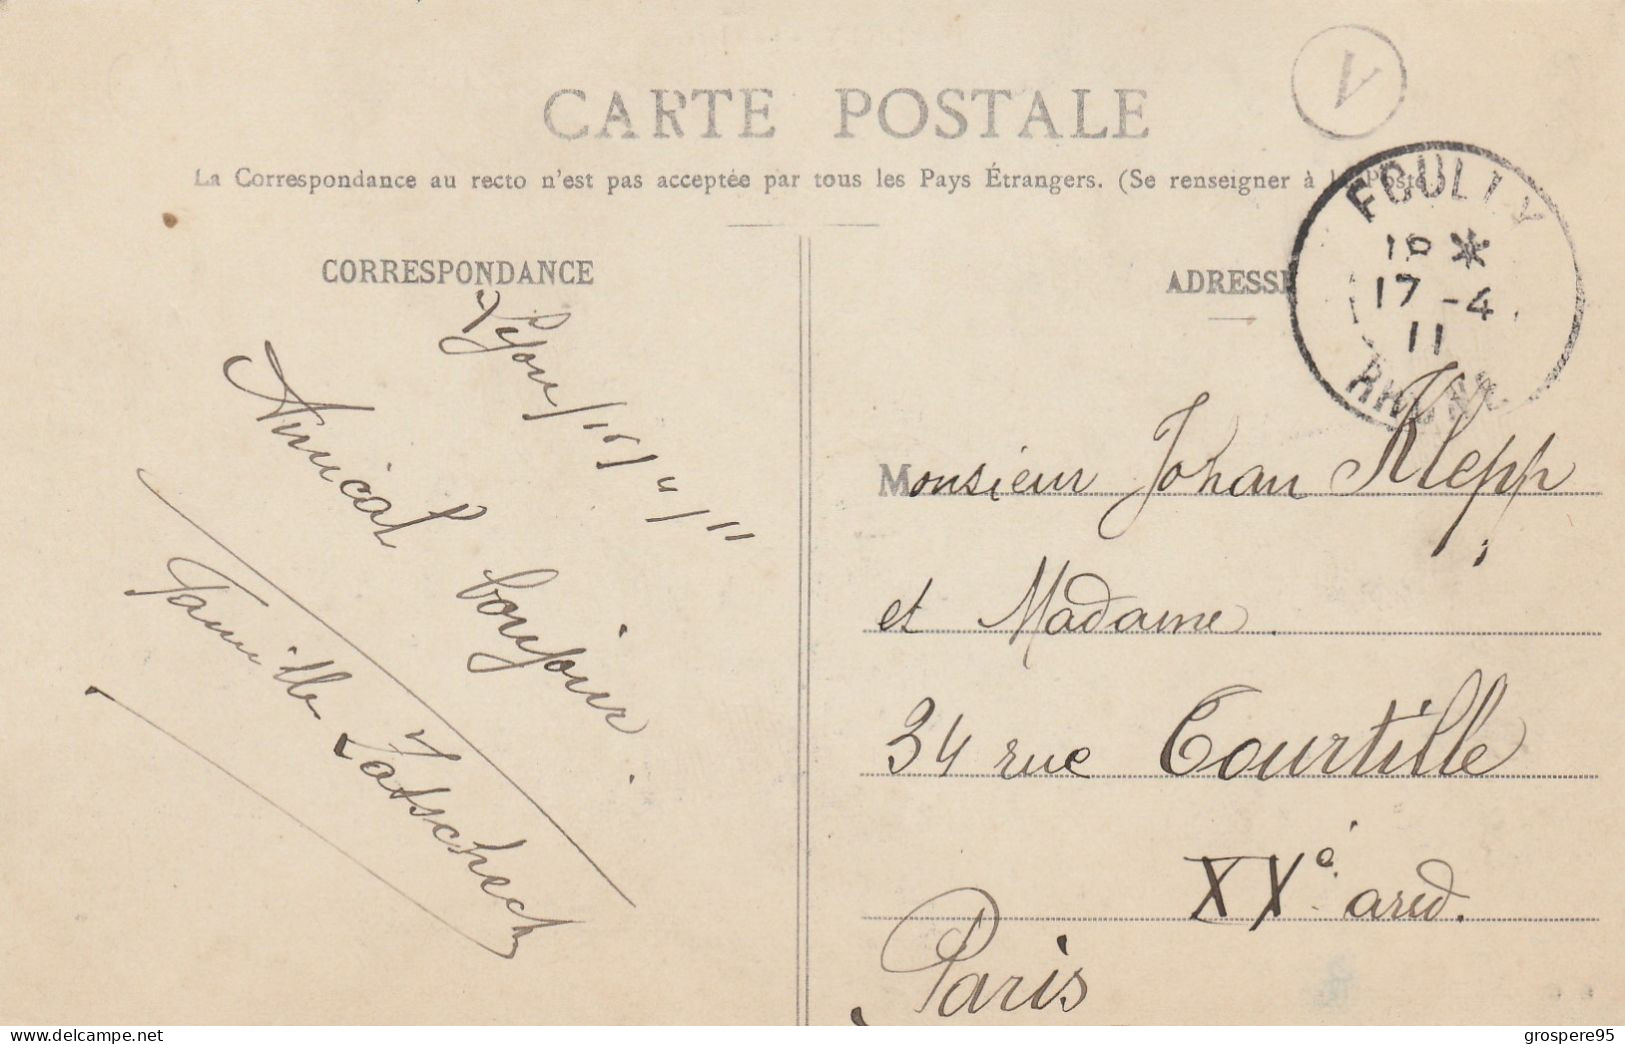 CARTE POSTALE
La Correspondance au recto n'est pas acceptée par tous les Pays Étrangers. (Se renseigner à la Poste
CORRESPONDANCE
Lyon / 16 / 4 / 11
Amical bonjour.
Famille Zatscheck
ADRESSE
V
17 -4
11
RHONE
Monsieur Johan Klepp
et Madame
34 rue Courtille
XXe arrd.
Paris
grospere95